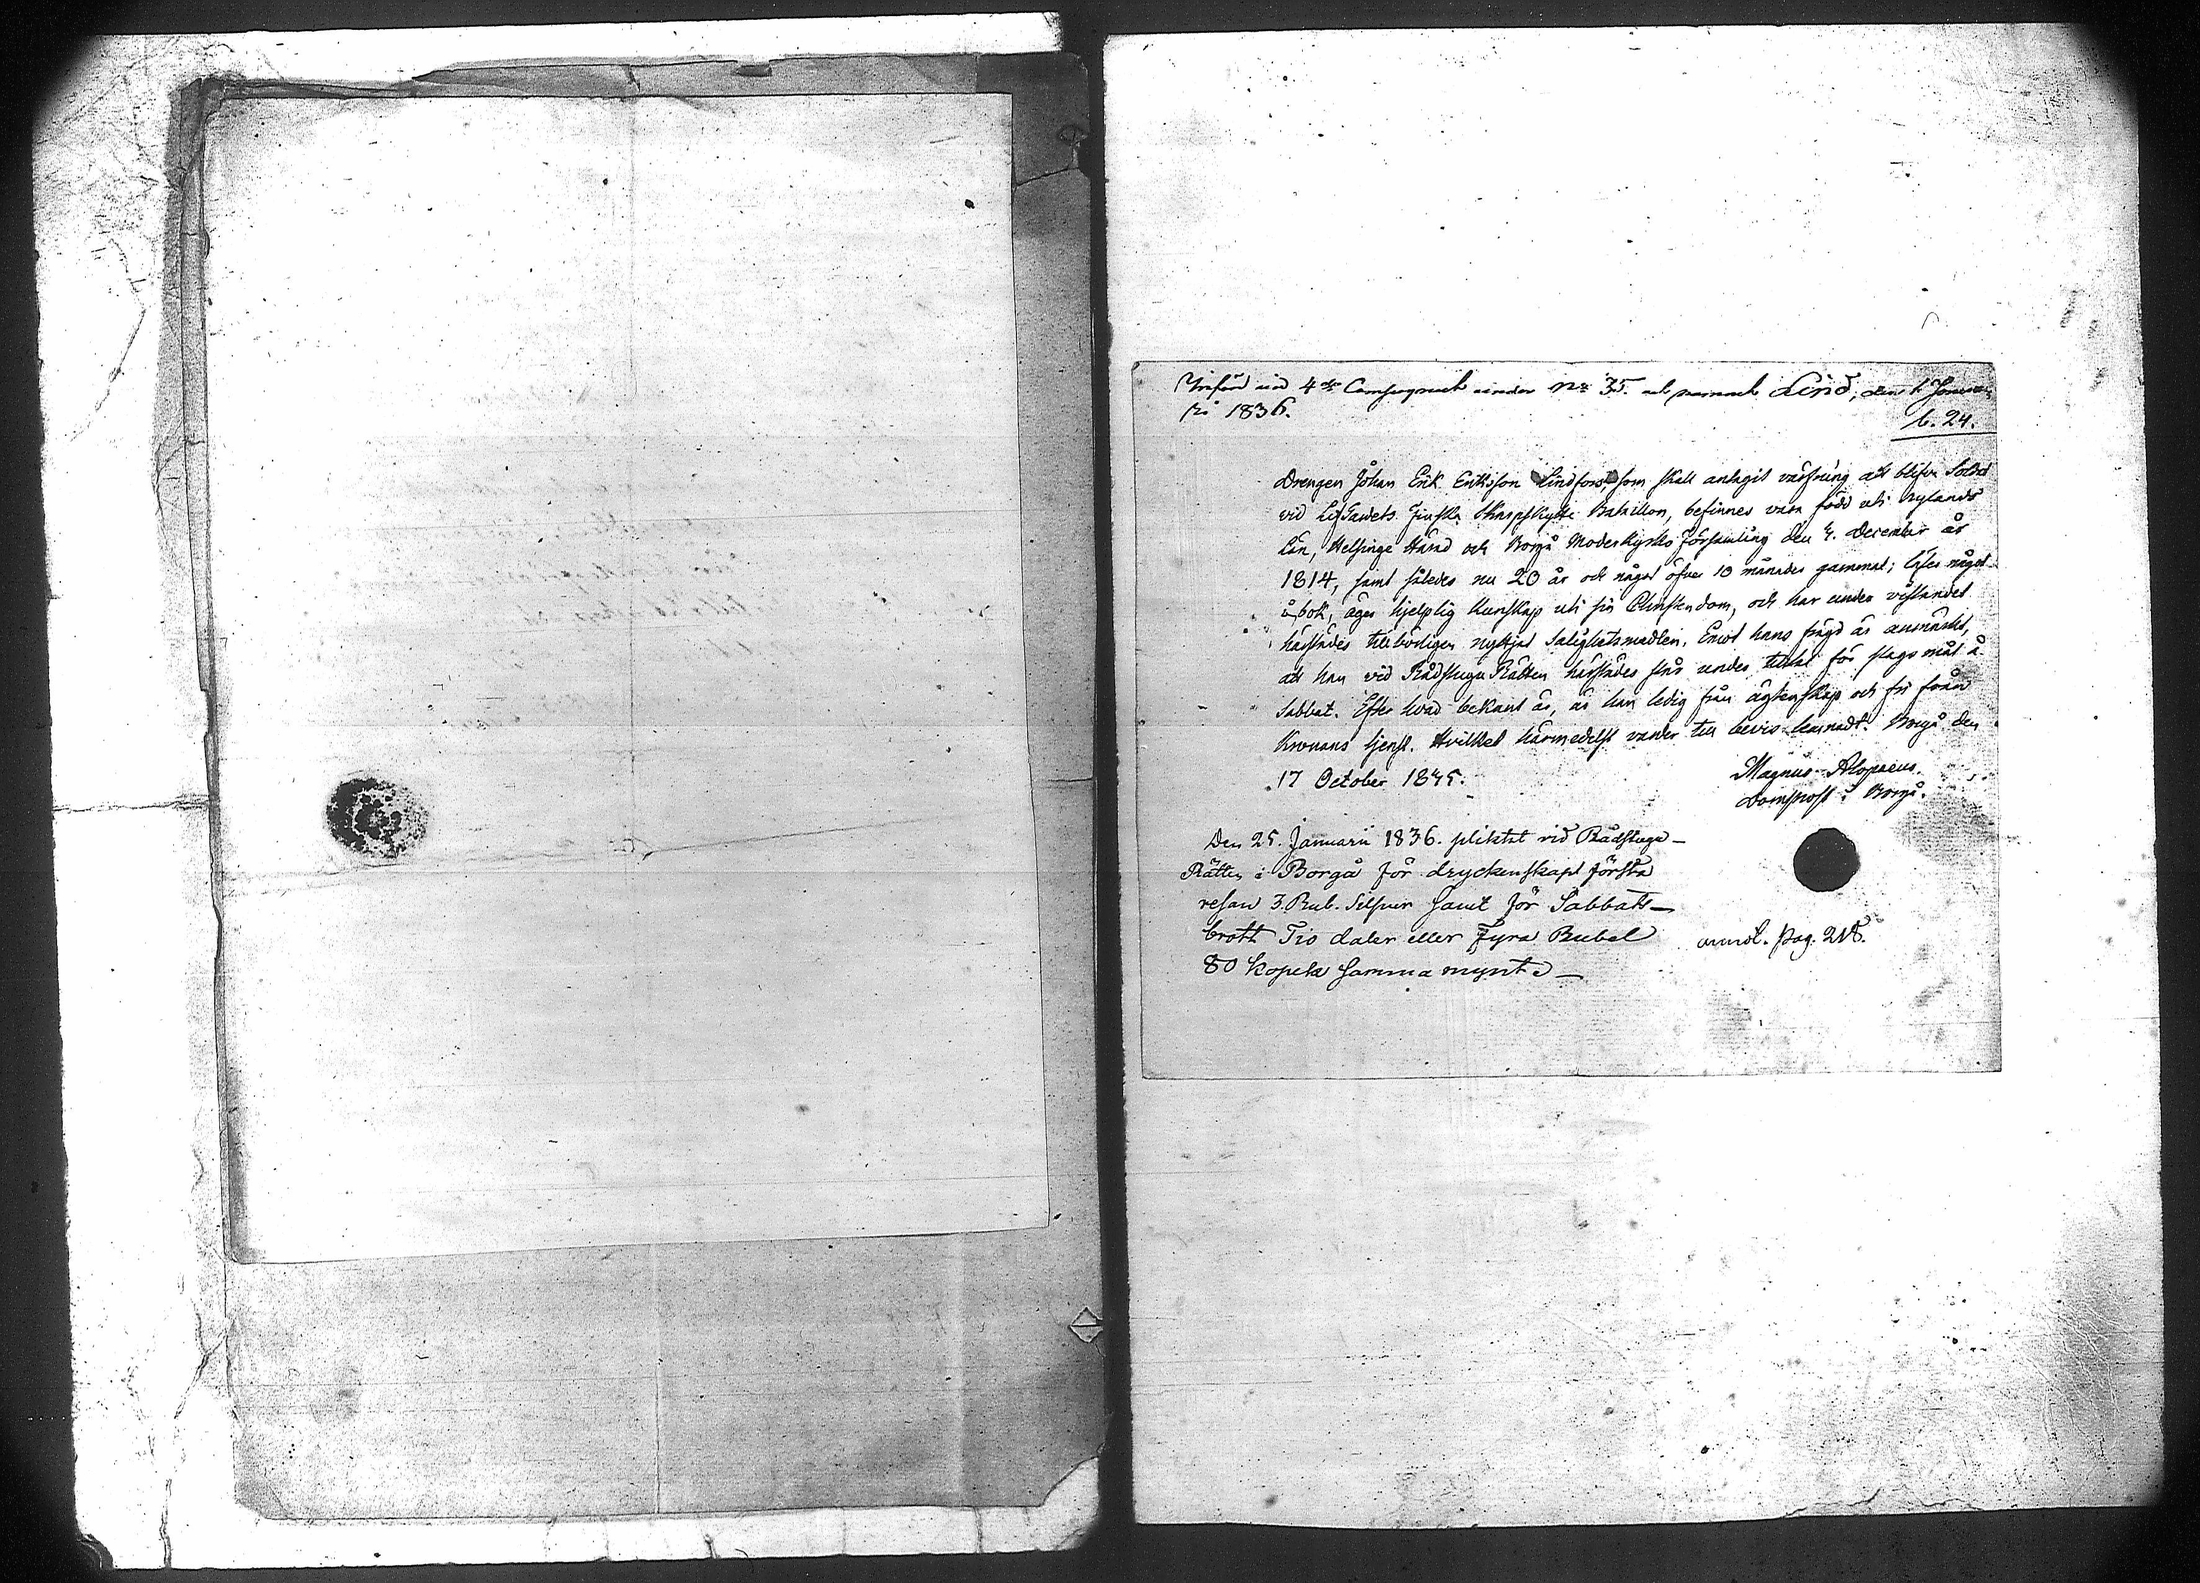 Införd vid 4de Compagniet under No 35. med namnet Lind, den 1 Janua-
rii 1836.
b. 24.
Drengen Johan Erik Eriksson Lindfors, som skall antagit värfning att blifva Soldat
vid Lif Gardets Finska Skarpskytte Bataillon, befinnes vara född uti Nylands
Län, Helsinge Härad och Borgå Moderkyrko församling den 4. December år
1814, samt således nu 20 år och något öfver 10 månader gammal; läser något
i bok, äger hjelplig kunskap uti sin Christendom, och har under vistandet
härstädes tillbörligen nyttjat Salighetsmedlen. Emot hans frägd är anmärkt,
att han vid Rådstugu Rätten härstädes står under tilltal för slagsmål å
Sabbat. Efter hvad bekant är, är han ledig från ägtenskap och fri från
Kronans tjenst. Hvilket härmedelst varder till bevis lemnadt. Borgå den
17 October 1835.
Magnus Alopaeus.
Domprost i Borgå.
Den 25. Januarii 1836. pliktat vid Rådstugu-
Rätten i Borgå för dryckenskap första
resan 3. Rub. Silfver samt för Sabbats-
brott Tio daler eller Fyra Rubel
80 kopek samma mynt.
annot. pag. 218.